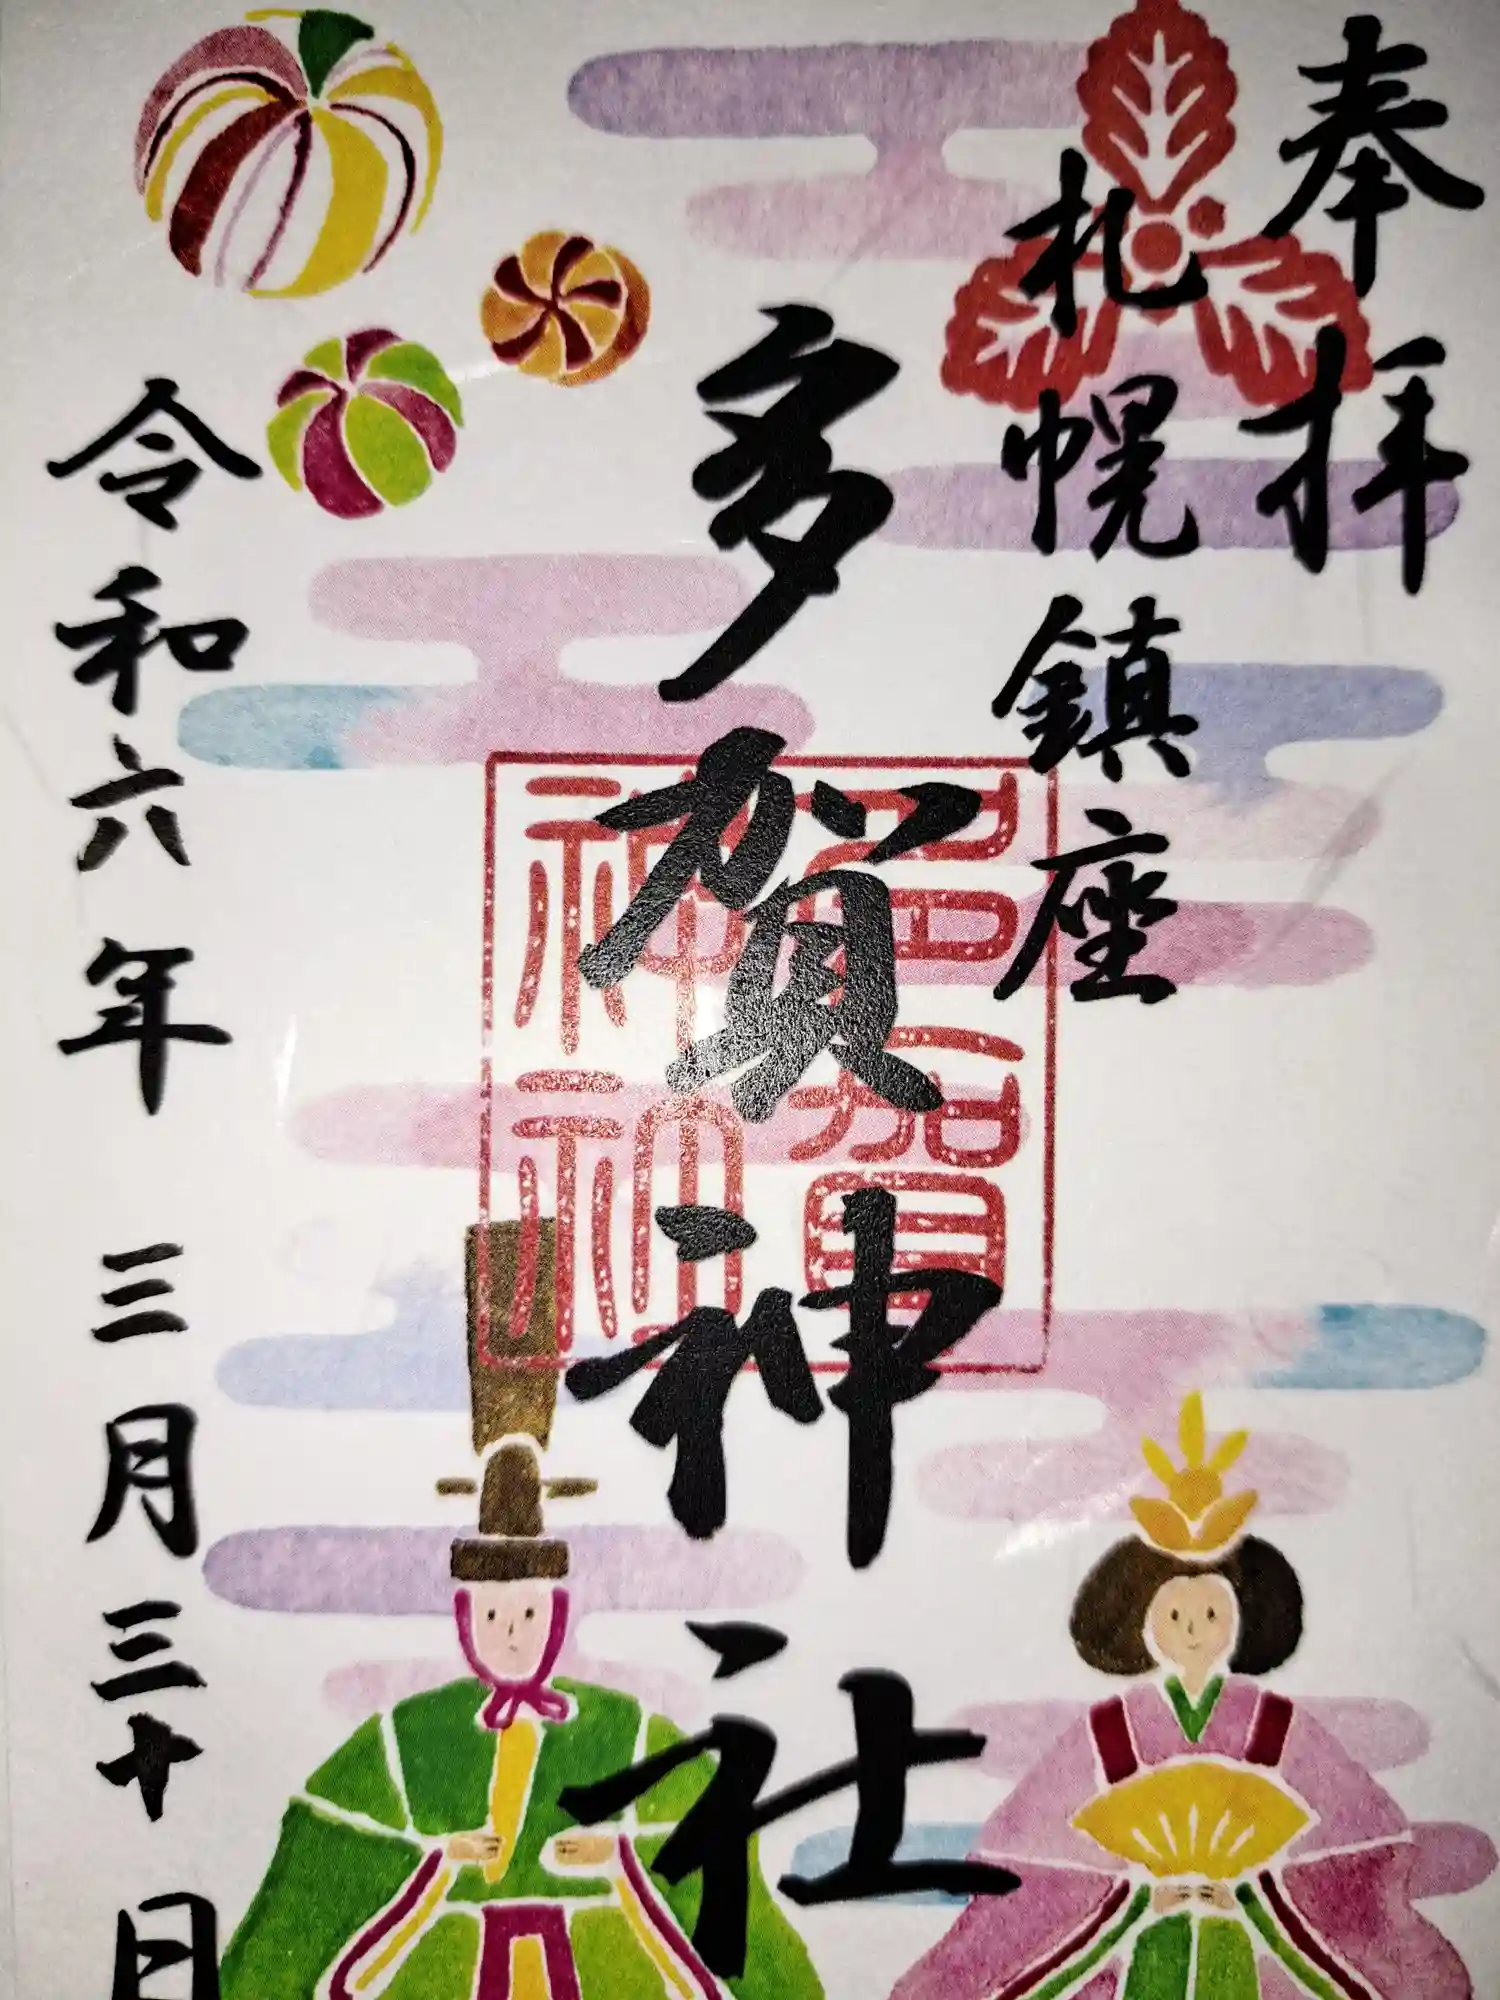 奉拝
札幌鎮座
多賀神社
令和六年 三月三十日